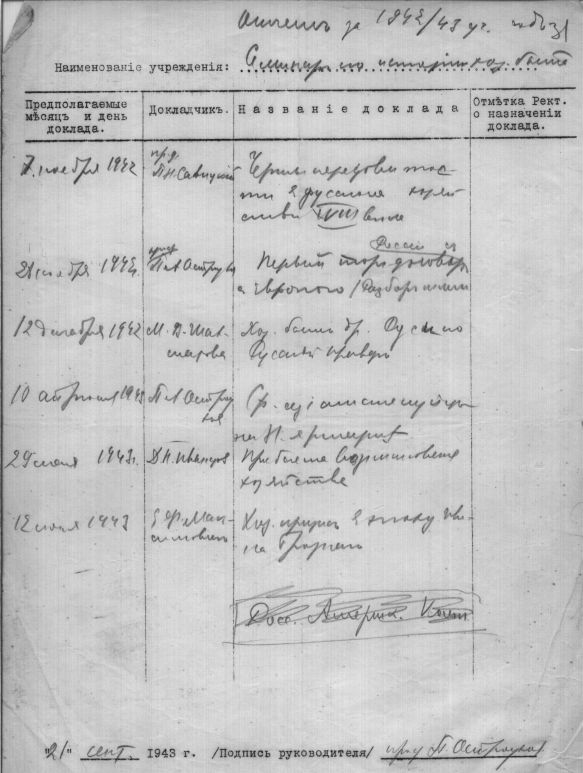 Отчетъ за 1942/43 уч. годъ
Наименованіе учрежденія: Семинар по исторіи хоз. быта
Предполагаемые мѣсяцъ и день доклада.
Докладчикъ.
Названіе доклада
Отмѣтка Рект. о назначеніи доклада.
7 ноября 1942
проф.
П.Н. Савицкій
Черты передовитос-
ти в русском хозяй-
стве XVIII века
21 ноября 1942
проф.
П А Остроухов
Россіи съ
Первый торг. договор
12 декабря 1942
М. В. Шах-
матова
Хоз. быт др. Руси по
Русской Правде
10 апреля 1943
П А Остроу-
хов
на Н. ярмарке
29 мая 1943 г.
Д Н Иванцов
хозяйства
12 июня 1943
Е Ф Мак-
симович
Хоз. в эпоху Ива-
на Грознаго
"21" сент. 1943 г. /Подпись руководителя/ проф П. Остроухов